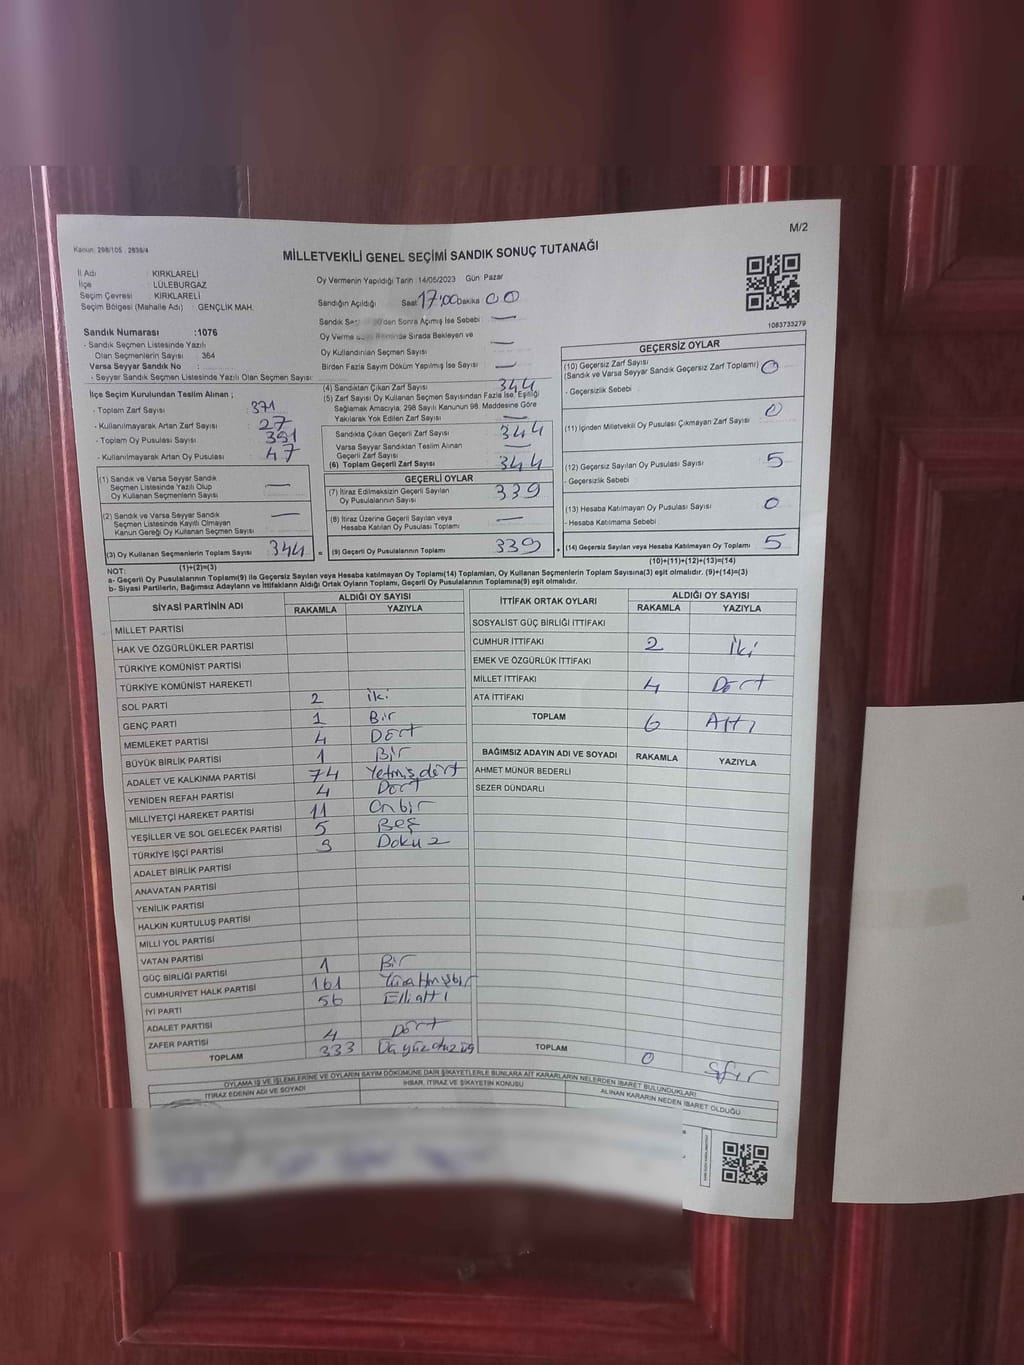 M/2
Kanun: 298/105 , 2839/4
MİLLETVEKİLİ GENEL SEÇİMİ SANDIK SONUÇ TUTANAĞI
İl Adı : KIRKLARELİ
İlçe : LÜLEBURGAZ
Seçim Çevresi : KIRKLARELİ
Seçim Bölgesi (Mahalle Adı) : GENÇLİK MAH.
Oy Vermenin Yapıldığı Tarih : 14/05/2023 Gün: Pazar
Sandığın Açıldığı Saat 17:00 Dakika 00
Oy Kullandırılan Seçmen Sayısı —
Birden Fazla Sayım Döküm Yapılmış İse Sayısı —
1083733279
Sandık Numarası :1076
- Sandık Seçmen Listesinde Yazılı
Olan Seçmenlerin Sayısı : 364
Varsa Seyyar Sandık No :
- Seyyar Sandık Seçmen Listesinde Yazılı Olan Seçmen Sayısı:
İlçe Seçim Kurulundan Teslim Alınan ;
- Toplam Zarf Sayısı : 371
- Kullanılmayarak Artan Zarf Sayısı : 27
- Toplam Oy Pusulası Sayısı : 391
- Kullanılmayarak Artan Oy Pusulası : 47
(1) Sandık ve Varsa Seyyar Sandık
Seçmen Listesinde Yazılı Olup
Oy Kullanan Seçmenlerin Sayısı —
(2) Sandık ve Varsa Seyyar Sandık
Seçmen Listesinde Kayıtlı Olmayan
Kanun Gereği Oy Kullanan Seçmen Sayısı —
(3) Oy Kullanan Seçmenlerin Toplam Sayısı 344 =
(1)+(2)=(3)
(4) Sandıktan Çıkan Zarf Sayısı 344
(5) Zarf Sayısı Oy Kullanan Seçmen Sayısından Fazla İse, Eşitliği
Sağlamak Amacıyla, 298 Sayılı Kanunun 98. Maddesine Göre
Yakılarak Yok Edilen Zarf Sayısı —
Sandıkta Çıkan Geçerli Zarf Sayısı 344
Varsa Seyyar Sandıktan Teslim Alınan
Geçerli Zarf Sayısı —
(6) Toplam Geçerli Zarf Sayısı 344
GEÇERLİ OYLAR
(7) İtiraz Edilmeksizin Geçerli Sayılan
Oy Pusulalarının Sayısı 339
(8) İtiraz Üzerine Geçerli Sayılan veya
Hesaba Katılan Oy Pusulası Toplamı —
(9) Geçerli Oy Pusulalarının Toplamı 339 +
GEÇERSİZ OYLAR
(10) Geçersiz Zarf Sayısı
(Sandık ve Varsa Seyyar Sandık Geçersiz Zarf Toplamı) 0
- Geçersizlik Sebebi
(11) İçinden Milletvekili Oy Pusulası Çıkmayan Zarf Sayısı 0
(12) Geçersiz Sayılan Oy Pusulası Sayısı 5
- Geçersizlik Sebebi
(13) Hesaba Katılmayan Oy Pusulası Sayısı 0
- Hesaba Katılmama Sebebi
(14) Geçersiz Sayılan veya Hesaba Katılmayan Oy Toplamı 5
(10)+(11)+(12)+(13)=(14)
NOT:
a- Geçerli Oy Pusulalarının Toplamı(9) ile Geçersiz Sayılan veya Hesaba katılmayan Oy Toplamı(14) Toplamları, Oy Kullanan Seçmenlerin Toplam Sayısına(3) eşit olmalıdır. (9)+(14)=(3)
b- Siyasi Partilerin, Bağımsız Adayların ve İttifakların Aldığı Ortak Oyların Toplamı, Geçerli Oy Pusulalarının Toplamına(9) eşit olmalıdır.
SİYASİ PARTİNİN ADI ALDIĞI OY SAYISI
RAKAMLA YAZIYLA
MİLLET PARTİSİ
HAK VE ÖZGÜRLÜKLER PARTİSİ
TÜRKİYE KOMÜNİST PARTİSİ
TÜRKİYE KOMÜNİST HAREKETİ
SOL PARTİ 2 iki
GENÇ PARTİ 1 Bir
MEMLEKET PARTİSİ 4 Dört
BÜYÜK BİRLİK PARTİSİ 1 Bir
ADALET VE KALKINMA PARTİSİ 74 Yetmiş dört
YENİDEN REFAH PARTİSİ 4 Dört
MİLLİYETÇİ HAREKET PARTİSİ 11 Onbir
YEŞİLLER VE SOL GELECEK PARTİSİ 5 Beş
TÜRKİYE İŞÇİ PARTİSİ 9 Dokuz
ADALET BİRLİK PARTİSİ
ANAVATAN PARTİSİ
YENİLİK PARTİSİ
HALKIN KURTULUŞ PARTİSİ
MİLLİ YOL PARTİSİ
VATAN PARTİSİ
GÜÇ BİRLİĞİ PARTİSİ 1 Bir
CUMHURİYET HALK PARTİSİ 161 Yüzaltmışbir
İYİ PARTİ 56 Ellialtı
ADALET PARTİSİ
ZAFER PARTİSİ 4 Dört
TOPLAM 333 Üçyüzotuzüç
İTTİFAK ORTAK OYLARI ALDIĞI OY SAYISI
RAKAMLA YAZIYLA
SOSYALİST GÜÇ BİRLİĞİ İTTİFAKI
CUMHUR İTTİFAKI 2 İki
EMEK VE ÖZGÜRLÜK İTTİFAKI
MİLLET İTTİFAKI 4 Dört
ATA İTTİFAKI
TOPLAM 6 Altı
BAĞIMSIZ ADAYIN ADI VE SOYADI RAKAMLA YAZIYLA
AHMET MÜNÜR BEDERLİ
SEZER DÜNDARLI
TOPLAM 0 Sıfır
OYLAMA İŞ VE İŞLEMLERİNE VE OYLARIN SAYIM DÖKÜMÜNE DAİR ŞİKAYETLERLE BUNLARA AİT KARARLARIN NELERDEN İBARET BULUNDUKLARI
İTİRAZ EDENİN ADI VE SOYADI İHBAR, İTİRAZ VE ŞİKAYETİN KONUSU ALINAN KARARIN NEDEN İBARET OLDUĞU